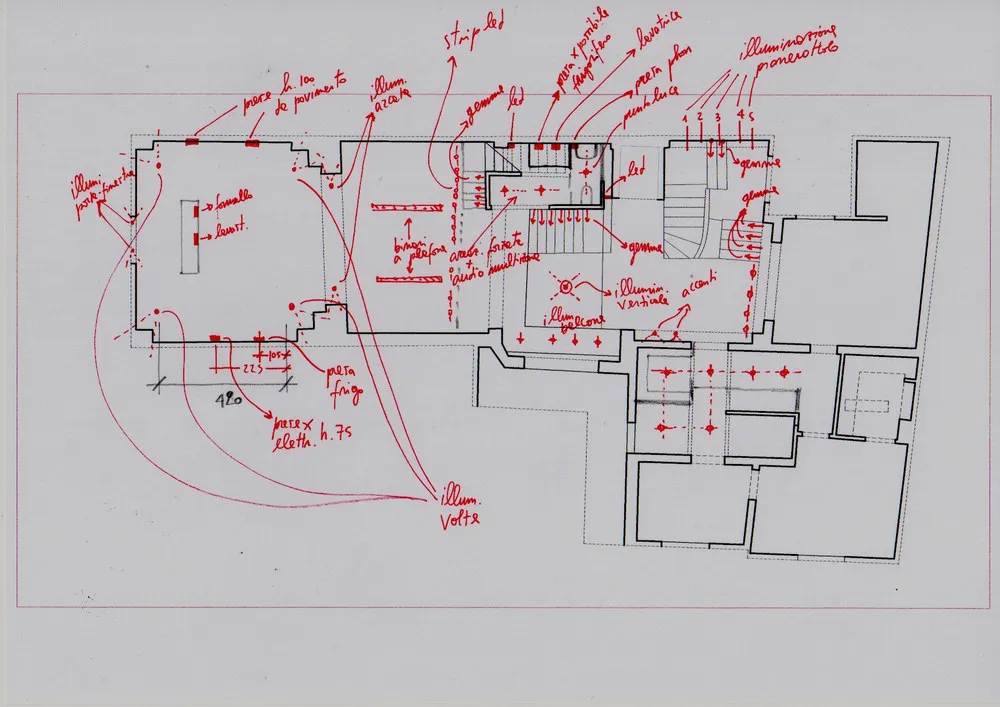 strip led
prese h. 100
da pavimento
illum.
arcata
gemme
led
presa x possibile
frigorifero
lavatrice
presa phon
punto luce
illuminazione
pianerottolo
1 2 3 4 5
gemme
gemme
led
illum.
porte-finestre
fornello
binari
a plafone
audio multiroom
gemme
illumin.
verticale
accenti
illum
balcone
105
225
420
presa
frigo
prese x
elettr. h. 75
illum.
volte